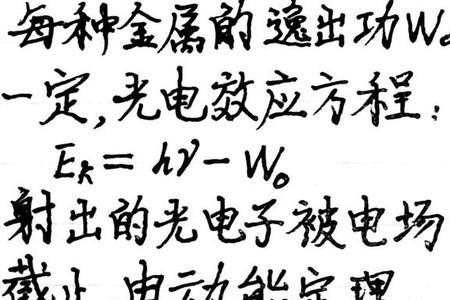 每种金属的逸出功W₀
一定,光电效应方程:
Eₖ=hν-W₀
射出的光电子被电场
截止,由动能定理